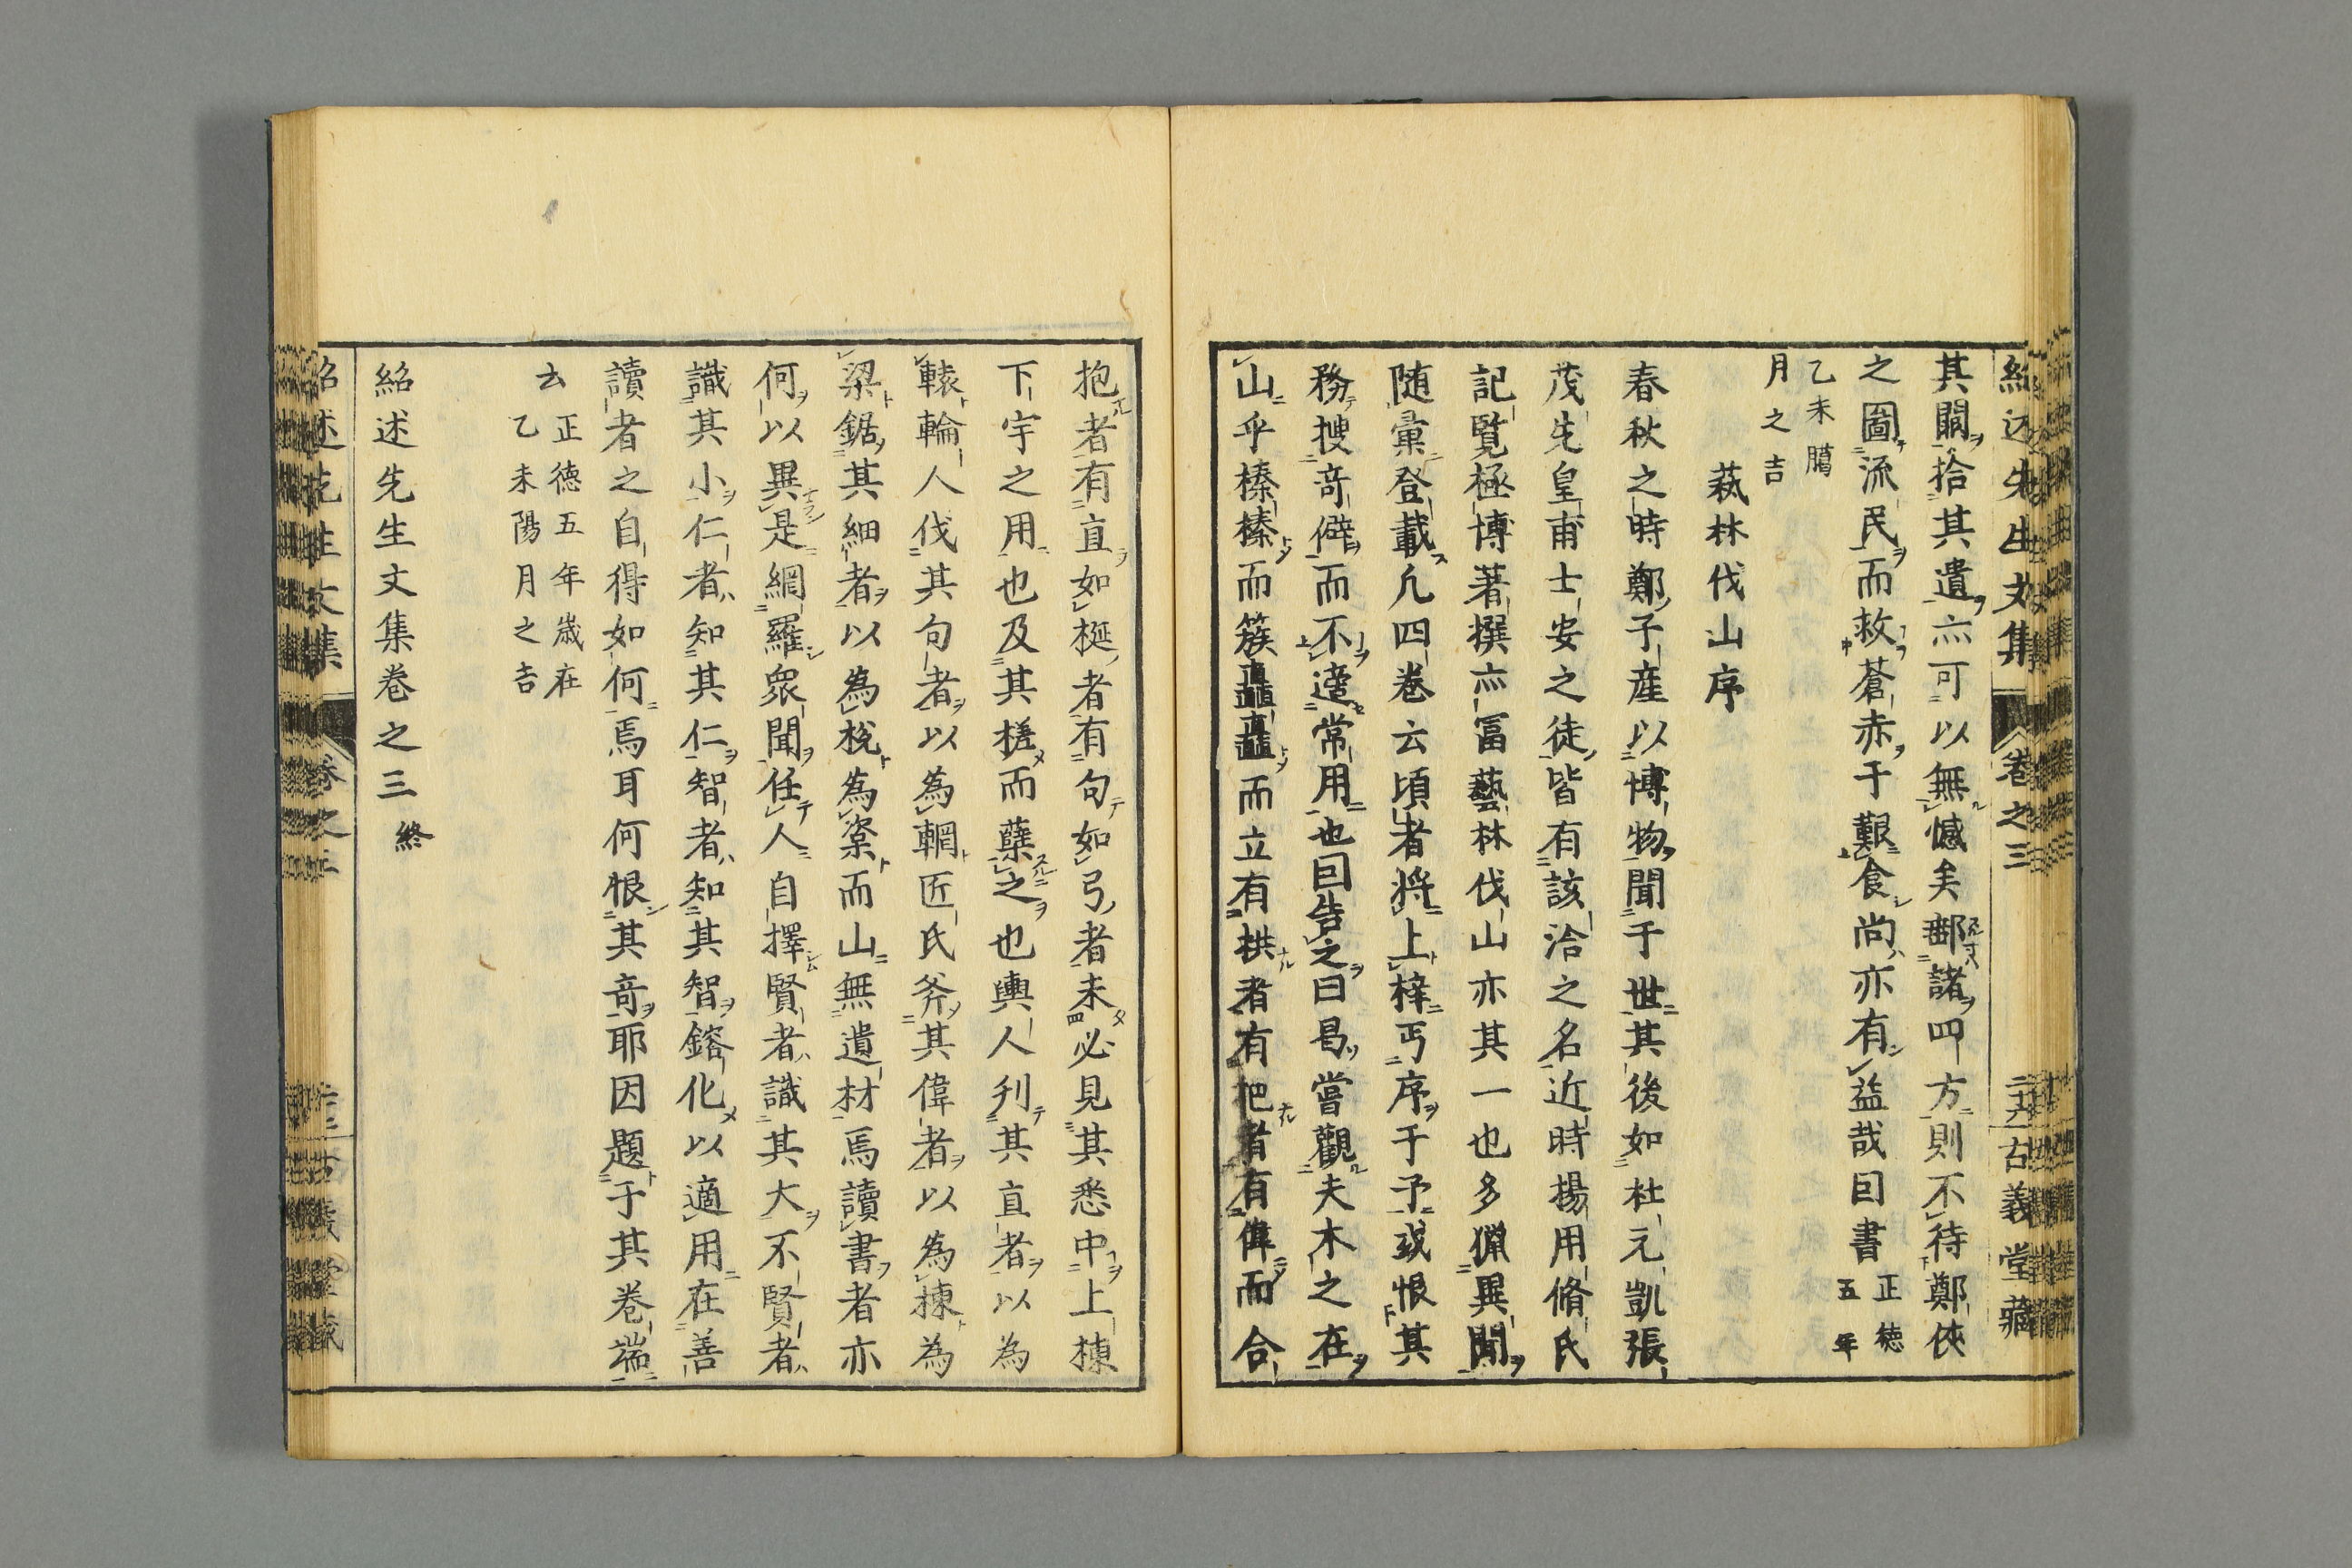 紹述先生文集 卷之三 二十六 古義堂藏
其闕拾其遺亦可以無憾矣郵諸四方則不待鄭俠
之圖流民而救蒼赤于艱食尚亦有益哉因書 正徳五年
乙未臈
月之吉
萩林伐山序
春秋之時鄭子産以博物聞于世其後如杜元凱張
茂先皇甫士安之徒皆有該洽之名近時楊用脩氏
記覽極博著撰亦冨藝林伐山亦其一也多獵異聞
随彙登載凢四卷云頃者將上梓丐序于予或恨其
務搜竒僻而不達常用也因告之曰曷嘗觀夫木之在
山乎榛榛而簇矗矗而立有拱者有把者有偉而合
抱者有直如梴者有句如弓者未必見其悉中上棟
下宇之用也及其槎而蘖之也輿人判其直者以為
轅輪人伐其句者以為輞匠氏斧其偉者以為棟為
梁鋸其細者以為梲為楶而山無遺材焉讀書者亦
何以異是網羅衆聞任人自擇賢者識其大不賢者
識其小仁者知其仁智者知其智鎔化以適用在善
讀者之自得如何焉耳何恨其竒耶因題于其卷端
云 正徳五年歳在
乙未陽月之吉
紹述先生文集卷之三終
紹述先生文集 卷之三